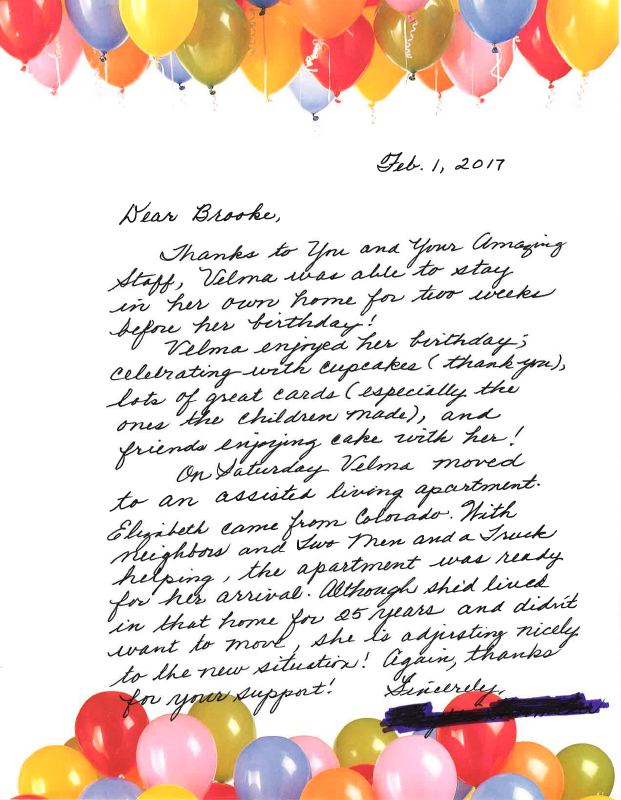 Feb. 1, 2017
Dear Brooke,
Thanks to You and Your Amazing
Staff, Velma was able to stay
in her own home for two weeks
before her birthday!
Velma enjoyed her birthday;
celebrating with cupcakes (thank you),
lots of great cards (especially the
ones the children made), and
friends enjoying cake with her!
On Saturday Velma moved
to an assisted living apartment.
Elizabeth came from Colorado. With
neighbors and Two Men and a Truck
helping, the apartment was ready
for her arrival. Although she'd lived
in that home for 25 years and didn't
want to move, she is adjusting nicely
to the new situation! Again, thanks
for your support! Sincerely,